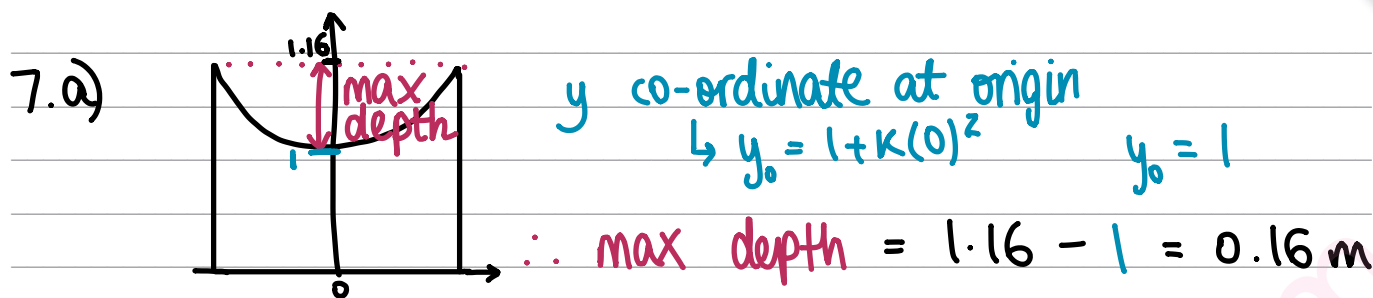 7.a)
1.16
max
depth
1
0
y co-ordinate at origin
↳ y₀ = 1+K(0)² y₀ = 1
∴ max depth = 1.16 - 1 = 0.16 m